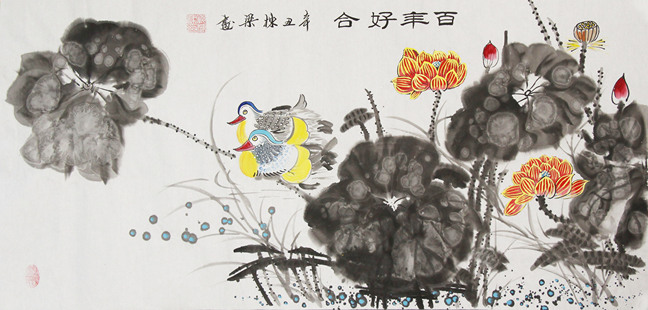 百年好合
辛丑栋梁画